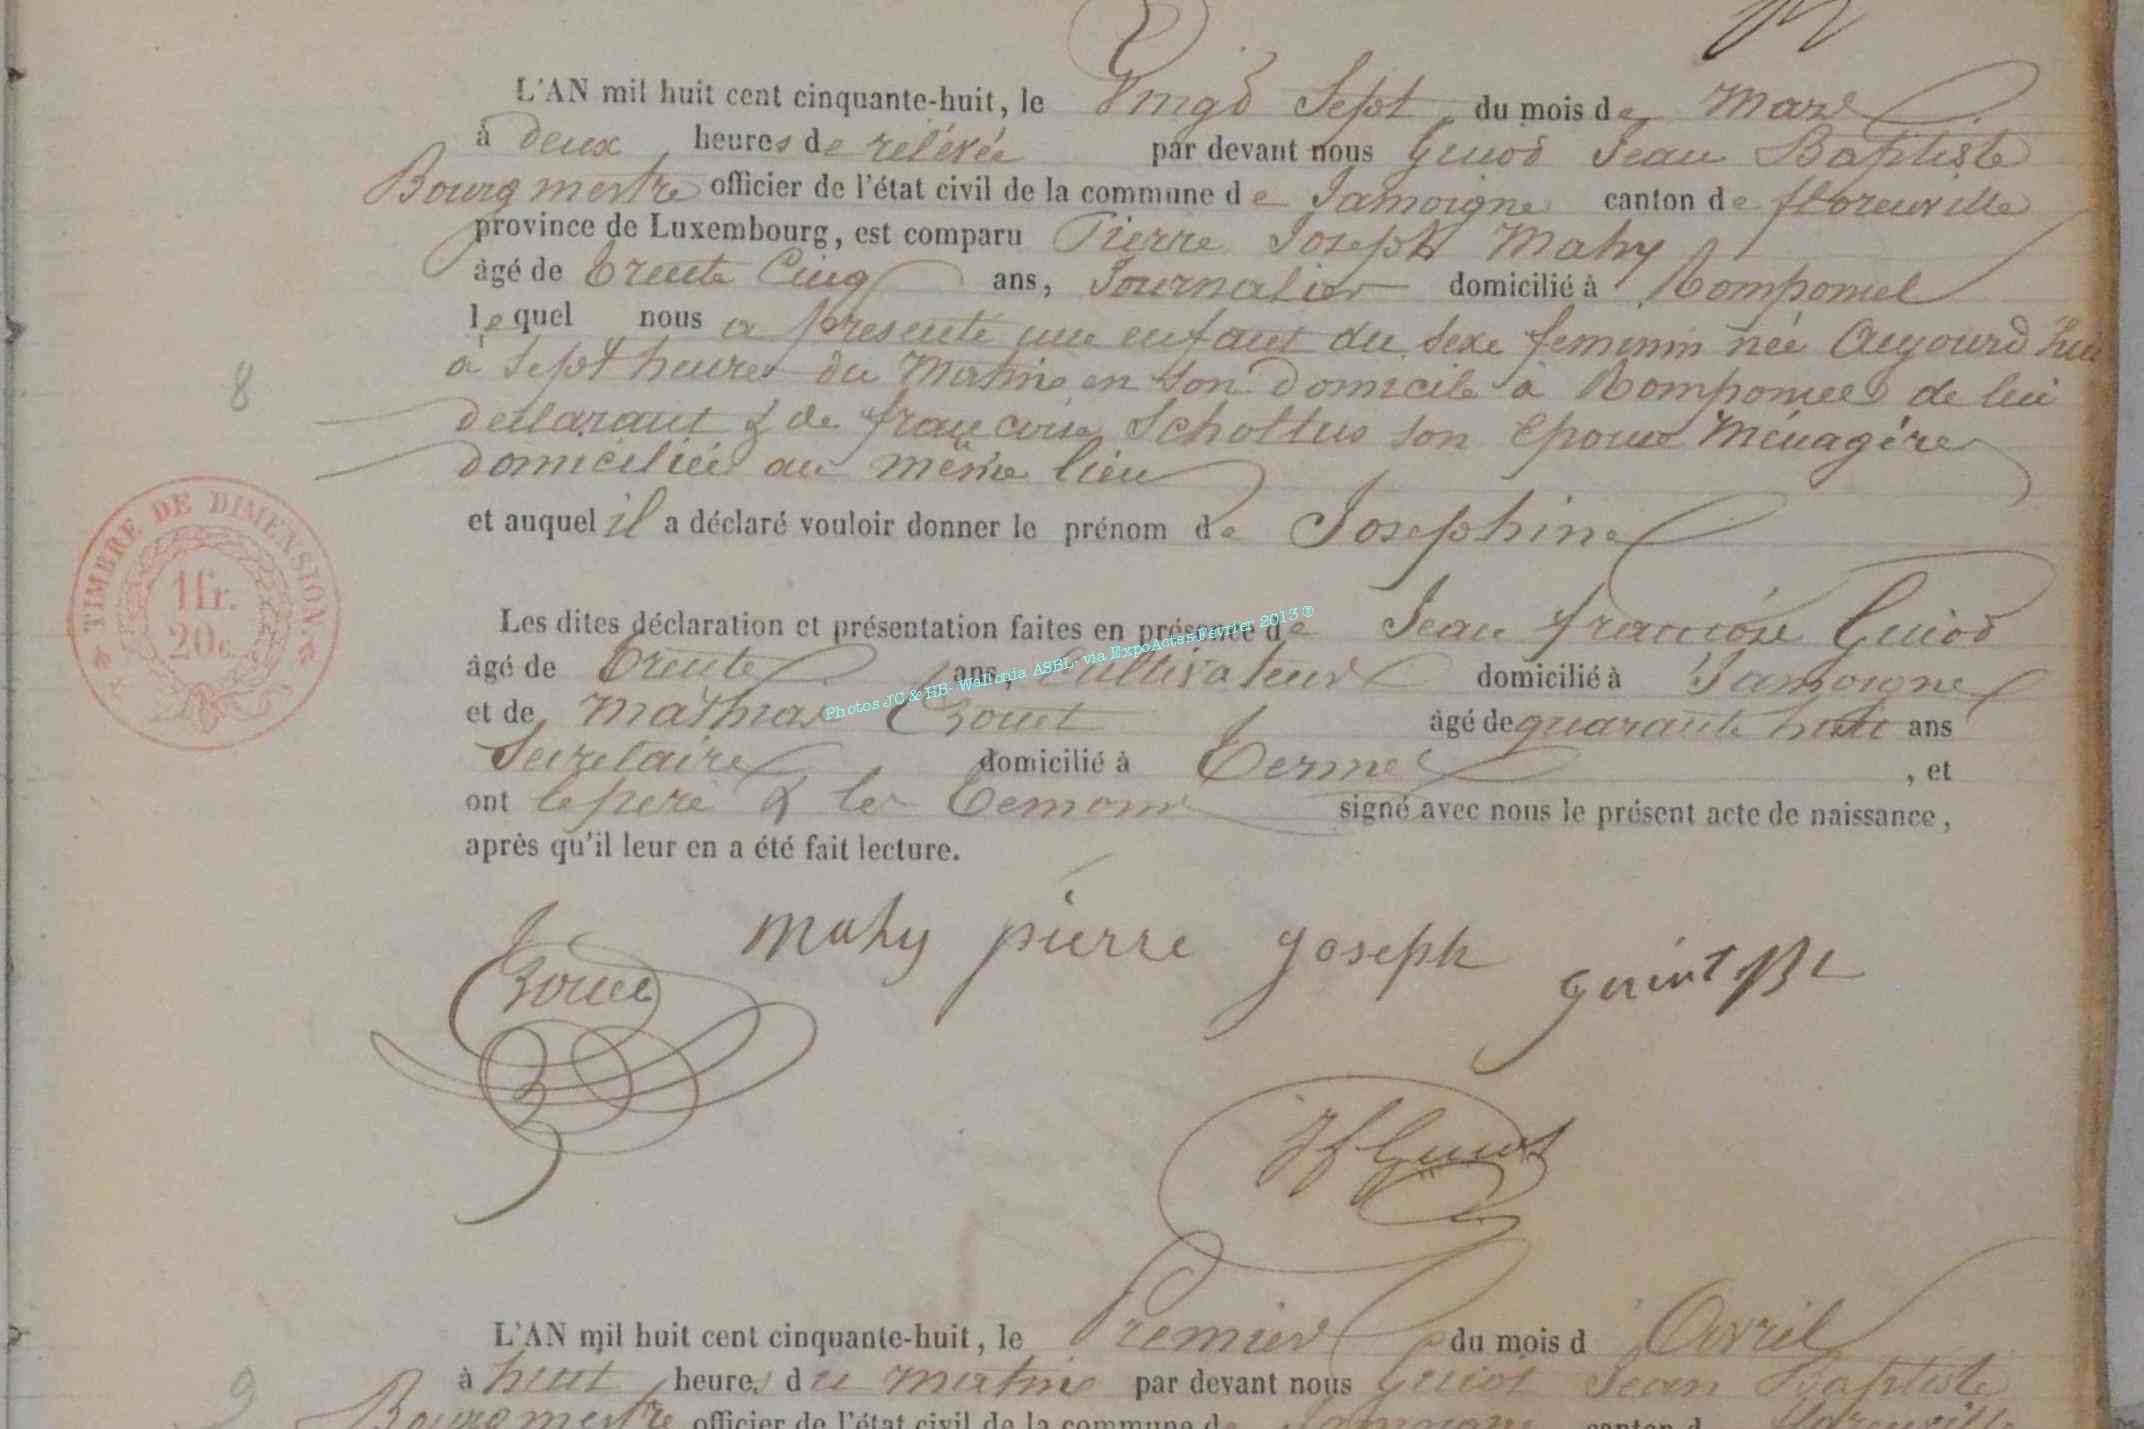 L'AN mil huit cent cinquante-huit, le Vingt Sept du mois de Mars
à deux heures de relevée par devant nous Guiot Jean Baptiste
Bourgmestre officier de l'état civil de la commune de Jamoigne canton de florenville
province de Luxembourg, est comparu Pierre Joseph Mahy
âgé de trente Cinq ans, Journalier domicilié à Romponcel
lequel nous a presenté une enfant du sexe feminin née Aujourd'hui
8
à sept heures du Matin en son domicile à Romponcel de lui
declarant & de françoise Schottus son epouse Ménagère
domiciliée au même lieu
et auquel il a déclaré vouloir donner le prénom de Josephine
TIMBRE DE DIMENSION.
1fr.
20c.
Les dites déclaration et présentation faites en présence de Jean françois Guiot
âgé de trente ans, Cultivateur domicilié à Jamoigne
Photos JC & HB- Wallonia ASBL- via ExpoActes-Février 2013 ®
et de Mathias Zouet âgé de quarante huit ans
Secretaire domicilié à Termes , et
ont le pere & les temoins signé avec nous le présent acte de naissance,
après qu'il leur en a été fait lecture.
mahy pierre joseph
JfGuiot
L'AN mil huit cent cinquante-huit, le Premier du mois d Avril
à huit heures du matin par devant nous Guiot Jean Baptiste
9
Bourgmestre officier de l'état civil de la commune de Jamoigne canton d florenville